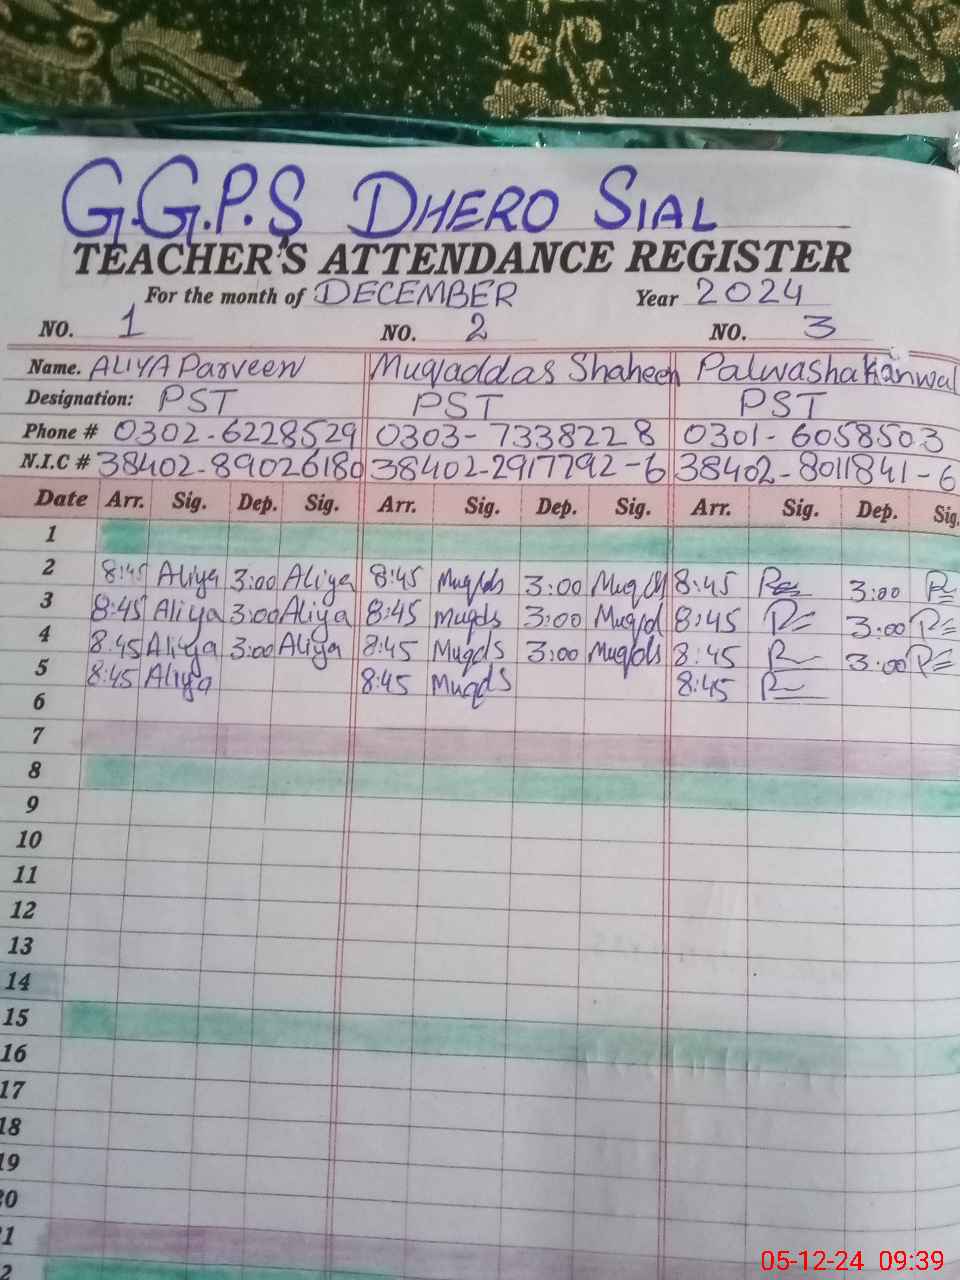 G.G.P.S DHERO SIAL
TEACHER'S ATTENDANCE REGISTER
For the month of DECEMBER Year 2024
NO. 1 NO. 2 NO. 3
Name. ALIYA Parveen Muqaddas Shaheen Palwasha Kanwal
Designation: PST PST PST
Phone # 0302-6228529 0303-7338228 0301-6058503
N.I.C # 38402-89026180 38402-2917792-6 38402-8011841-6
Date Arr. Sig. Dep. Sig. Arr. Sig. Dep. Sig. Arr. Sig. Dep. Sig.
1
2 8:45 Aliya 3:00 Aliya 8:45 Muqds 3:00 8:45 3:00
3 8:45 Aliya 3:00 Aliya 8:45 muqds 3:00 Muqd 8:45 3:00
4 8:45 Aliya 3:00 Aliya 8:45 Muqds 3:00 Muqds 8:45 3:00
5 8:45 Aliya 8:45 Muqds 8:45
6
7
8
9
10
11
12
13
14
15
16
17
18
19
20
1
2
05-12-24 09:39